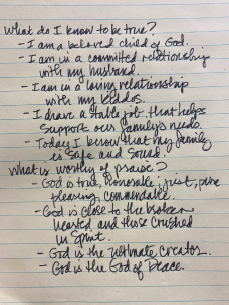 What do I know to be true?
- I am a beloved child of God.
- I am in a committed relationship
with my husband.
- I am in a loving relationship
with my kiddos.
- I have a stable job that helps
support our family's needs
- Today I know that my family
is safe and sound.
What is worthy of praise?
- God is true, honorable, just, pure
pleasing, commendable.
- God is close to the broken
hearted and those crushed
in spirit.
- God is the ultimate creator.
- God is the God of peace.